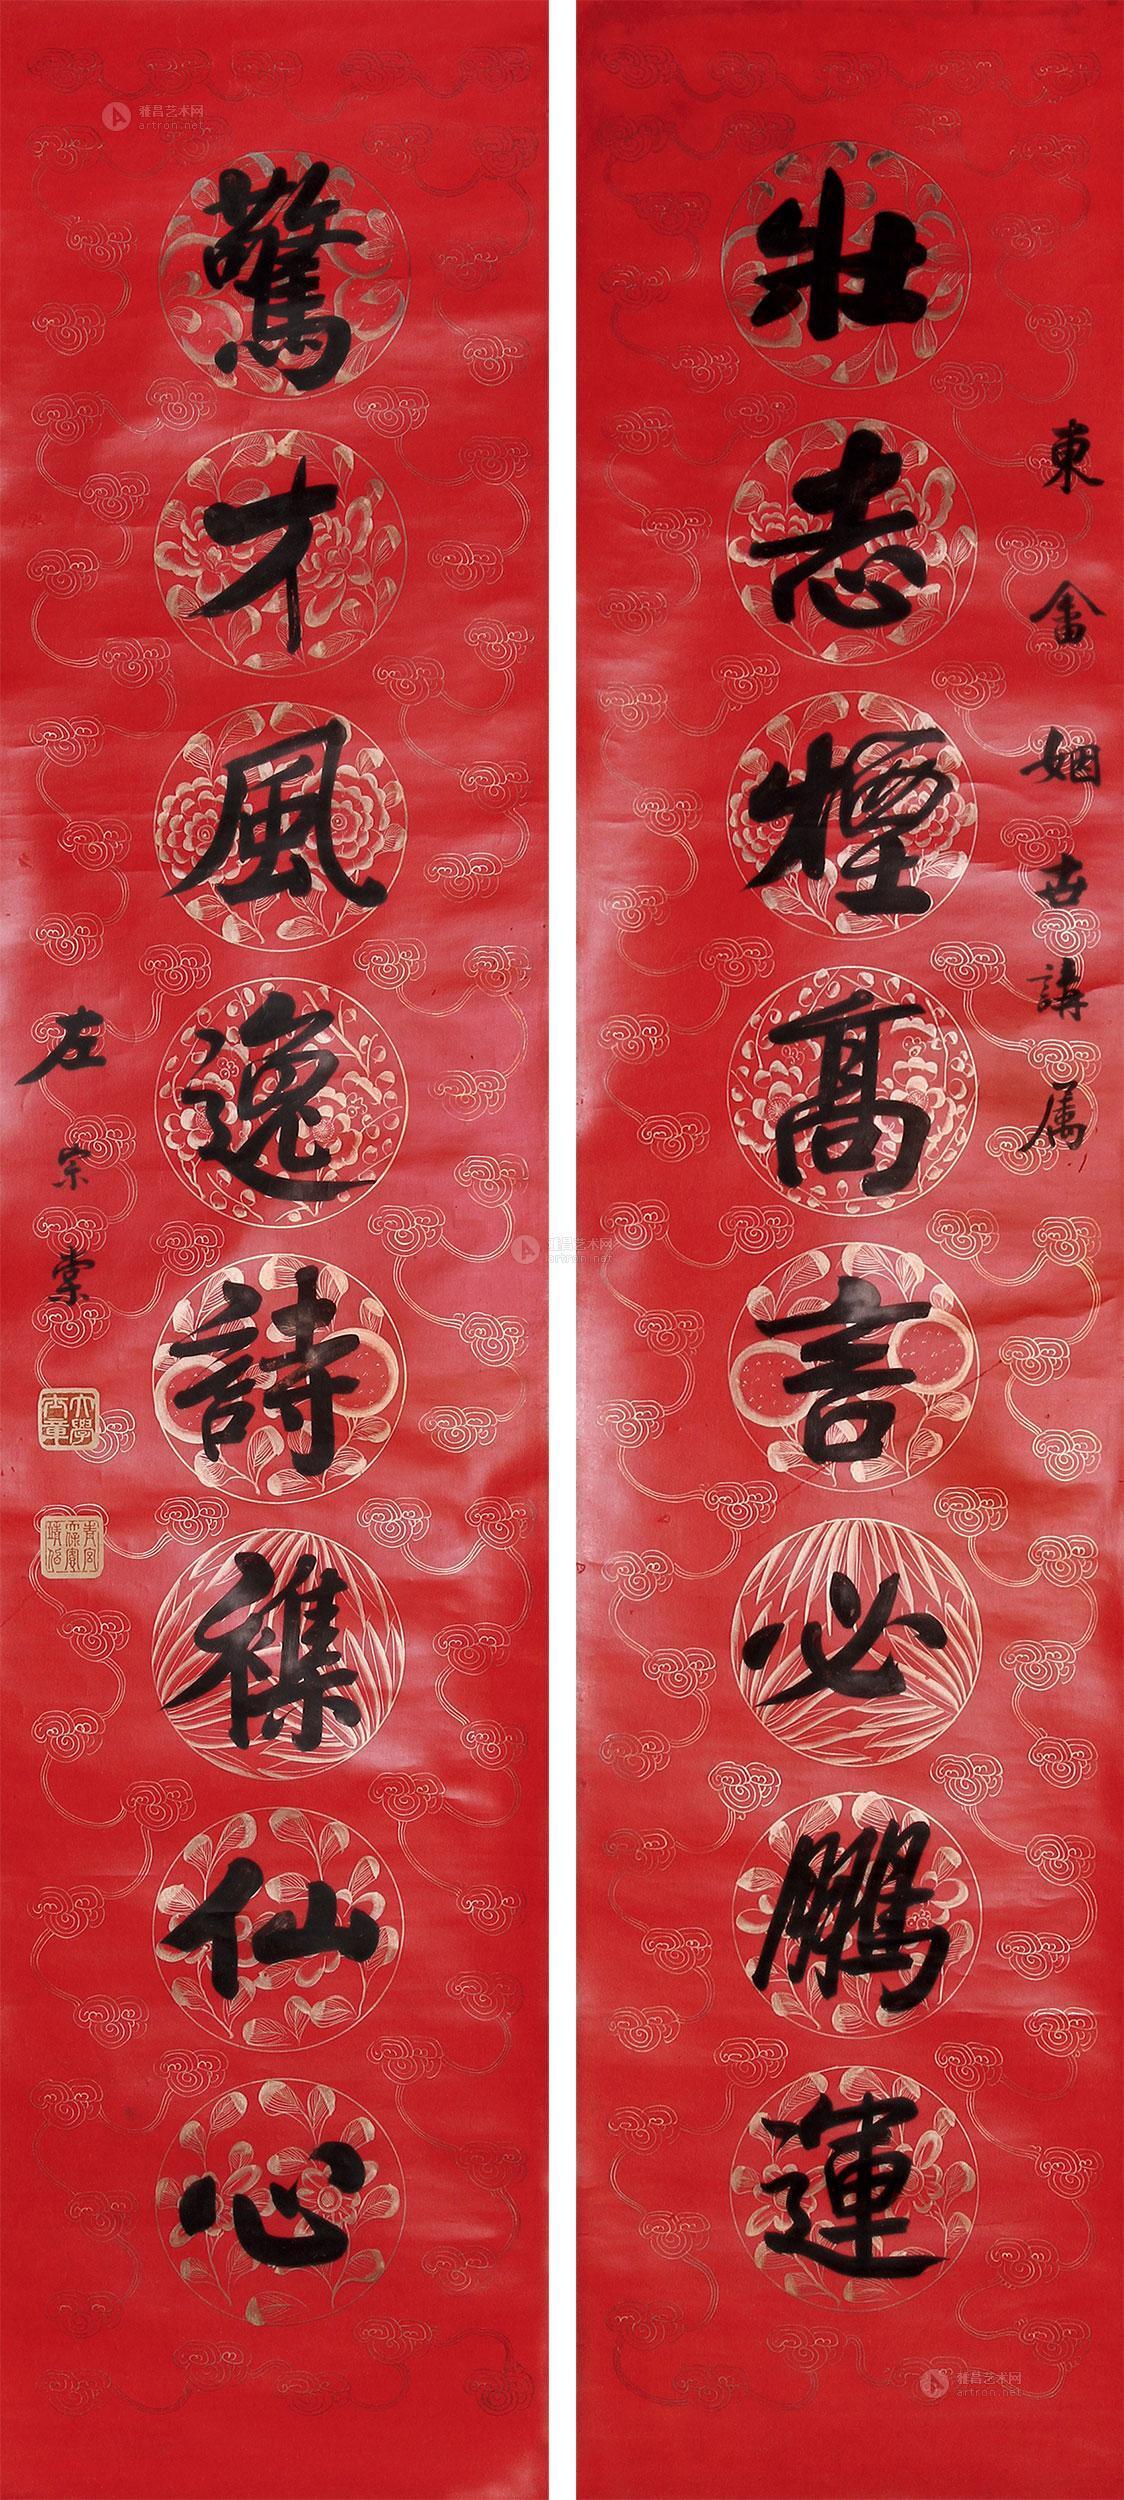 東畬姻世講屬
壯志煙高言必鵬運
驚才風逸詩襍仙心
左宗棠
大學士章
雅昌艺术网
artron.net
雅昌艺术网
artron.net
雅昌艺术网
artron.net